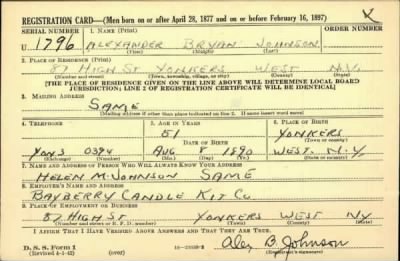 REGISTRATION CARD—(Men born on or after April 28, 1877 and on or before February 16, 1897)
SERIAL NUMBER 1. NAME (Print)
U 1796 ALEXANDER BRYAN JOHNSON
(First) (Middle) (Last)
2. PLACE OF RESIDENCE (Print)
87 HIGH ST YONKERS WEST N.Y.
(Number and street) (Town, township, village, or city) (County) (State)
[THE PLACE OF RESIDENCE GIVEN ON THE LINE ABOVE WILL DETERMINE LOCAL BOARD
JURISDICTION; LINE 2 OF REGISTRATION CERTIFICATE WILL BE IDENTICAL]
3. MAILING ADDRESS
SAME
[Mailing address if other than place indicated on line 2. If same insert word same]
4. TELEPHONE 5. AGE IN YEARS 6. PLACE OF BIRTH
51 YONKERS
DATE OF BIRTH (Town or county)
YONS 0394 AUG 8 1890 WEST. N.Y.
(Exchange) (Number) (Mo.) (Day) (Yr.) (State or country)
7. NAME AND ADDRESS OF PERSON WHO WILL ALWAYS KNOW YOUR ADDRESS
HELEN M. JOHNSON SAME
8. EMPLOYER'S NAME AND ADDRESS
BAYBERRY CANDLE KIT CO.
9. PLACE OF EMPLOYMENT OR BUSINESS
87 HIGH ST YONKERS WEST NY
(Number and street or R. F. D. number) (Town) (County) (State)
I AFFIRM THAT I HAVE VERIFIED ABOVE ANSWERS AND THAT THEY ARE TRUE.
D. S. S. Form 1
(Revised 4-1-42) (over) Alex B. Johnson
(Registrant's signature)